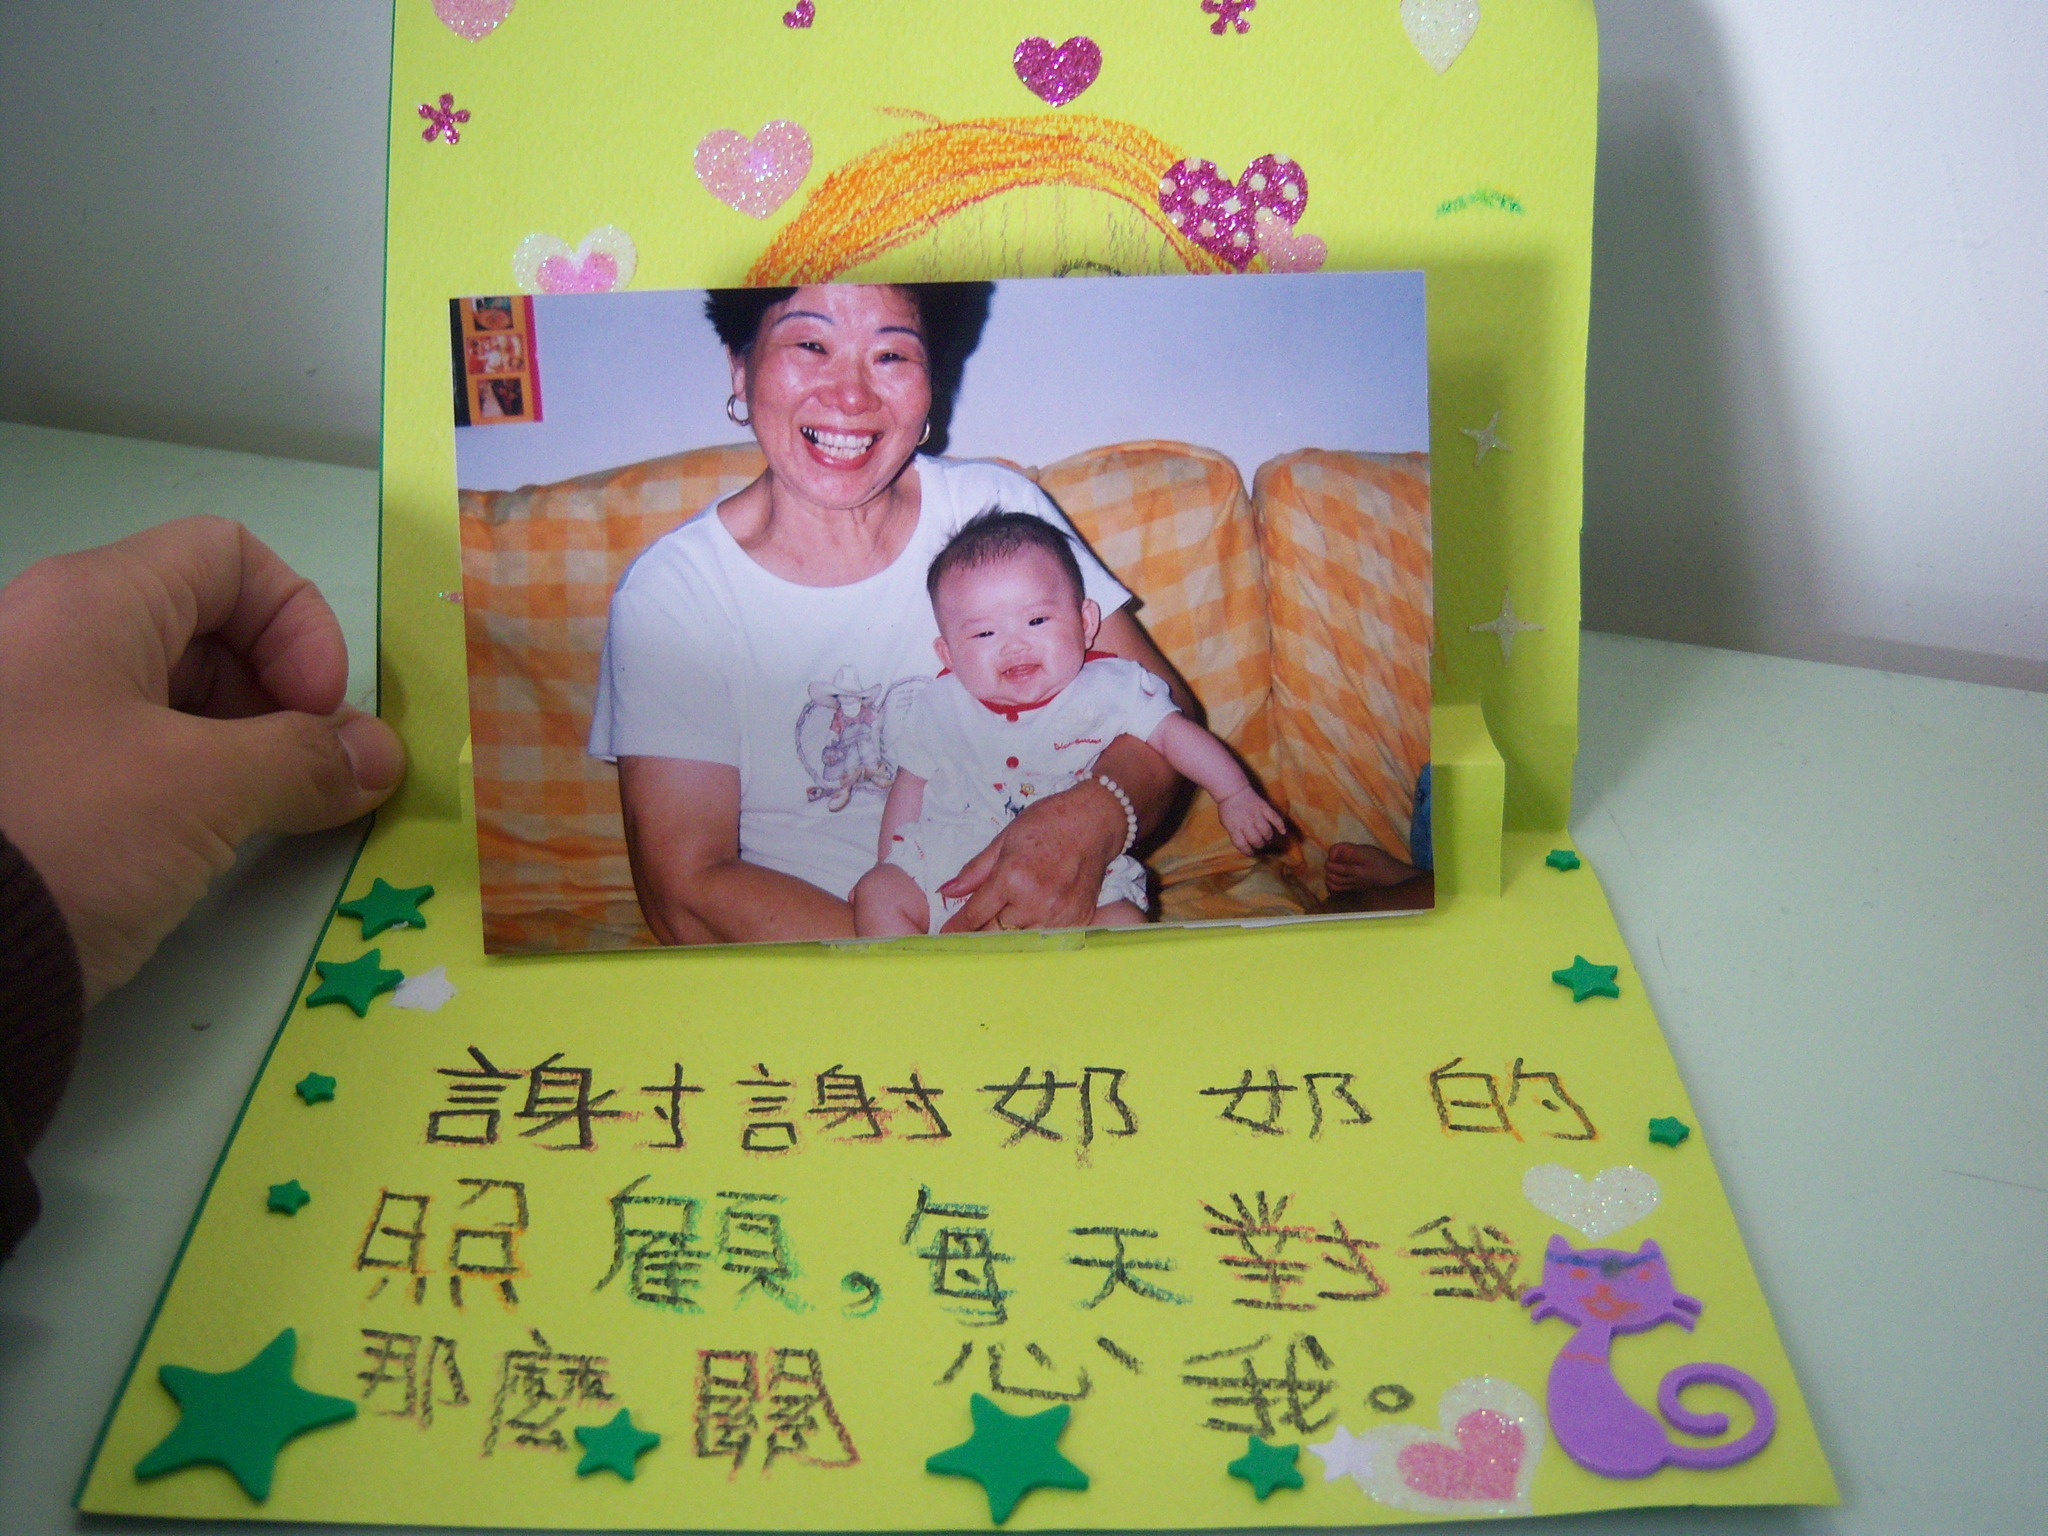 謝謝奶奶的
照顧,每天對我
那麼關心我。